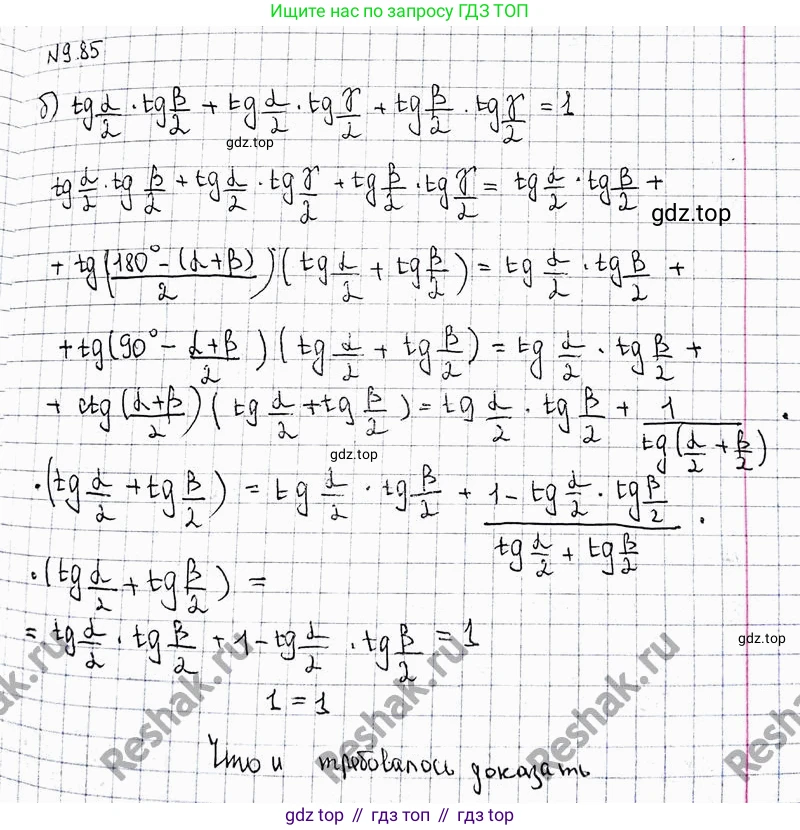 Ищите нас по запросу ГДЗ ТОП
N9.85
б) tg α/2 · tg β/2 + tg α/2 · tg γ/2 + tg β/2 · tg γ/2 = 1
gdz.top
tg α/2 · tg β/2 + tg α/2 · tg γ/2 + tg β/2 · tg γ/2 = tg α/2 · tg β/2 +
gdz.top
+ tg (180° - (α+β)/2) (tg α/2 + tg β/2) = tg α/2 · tg β/2 +
+ tg (90° - α+β/2) (tg α/2 + tg β/2) = tg α/2 · tg β/2 +
+ ctg (α+β/2) (tg α/2 + tg β/2) = tg α/2 · tg β/2 + 1/tg(α/2 + β/2) ·
gdz.top
· (tg α/2 + tg β/2) = tg α/2 · tg β/2 + 1 - tg α/2 · tg β/2 / tg α/2 + tg β/2 ·
· (tg α/2 + tg β/2) =
= tg α/2 · tg β/2 + 1 - tg α/2 · tg β/2 = 1
gdz.top
1 = 1
Что и требовалось доказать
Reshak.ru
Reshak.ru
Reshak.ru
gdz.top
Получи 5 вместе с ГДЗ ТОП